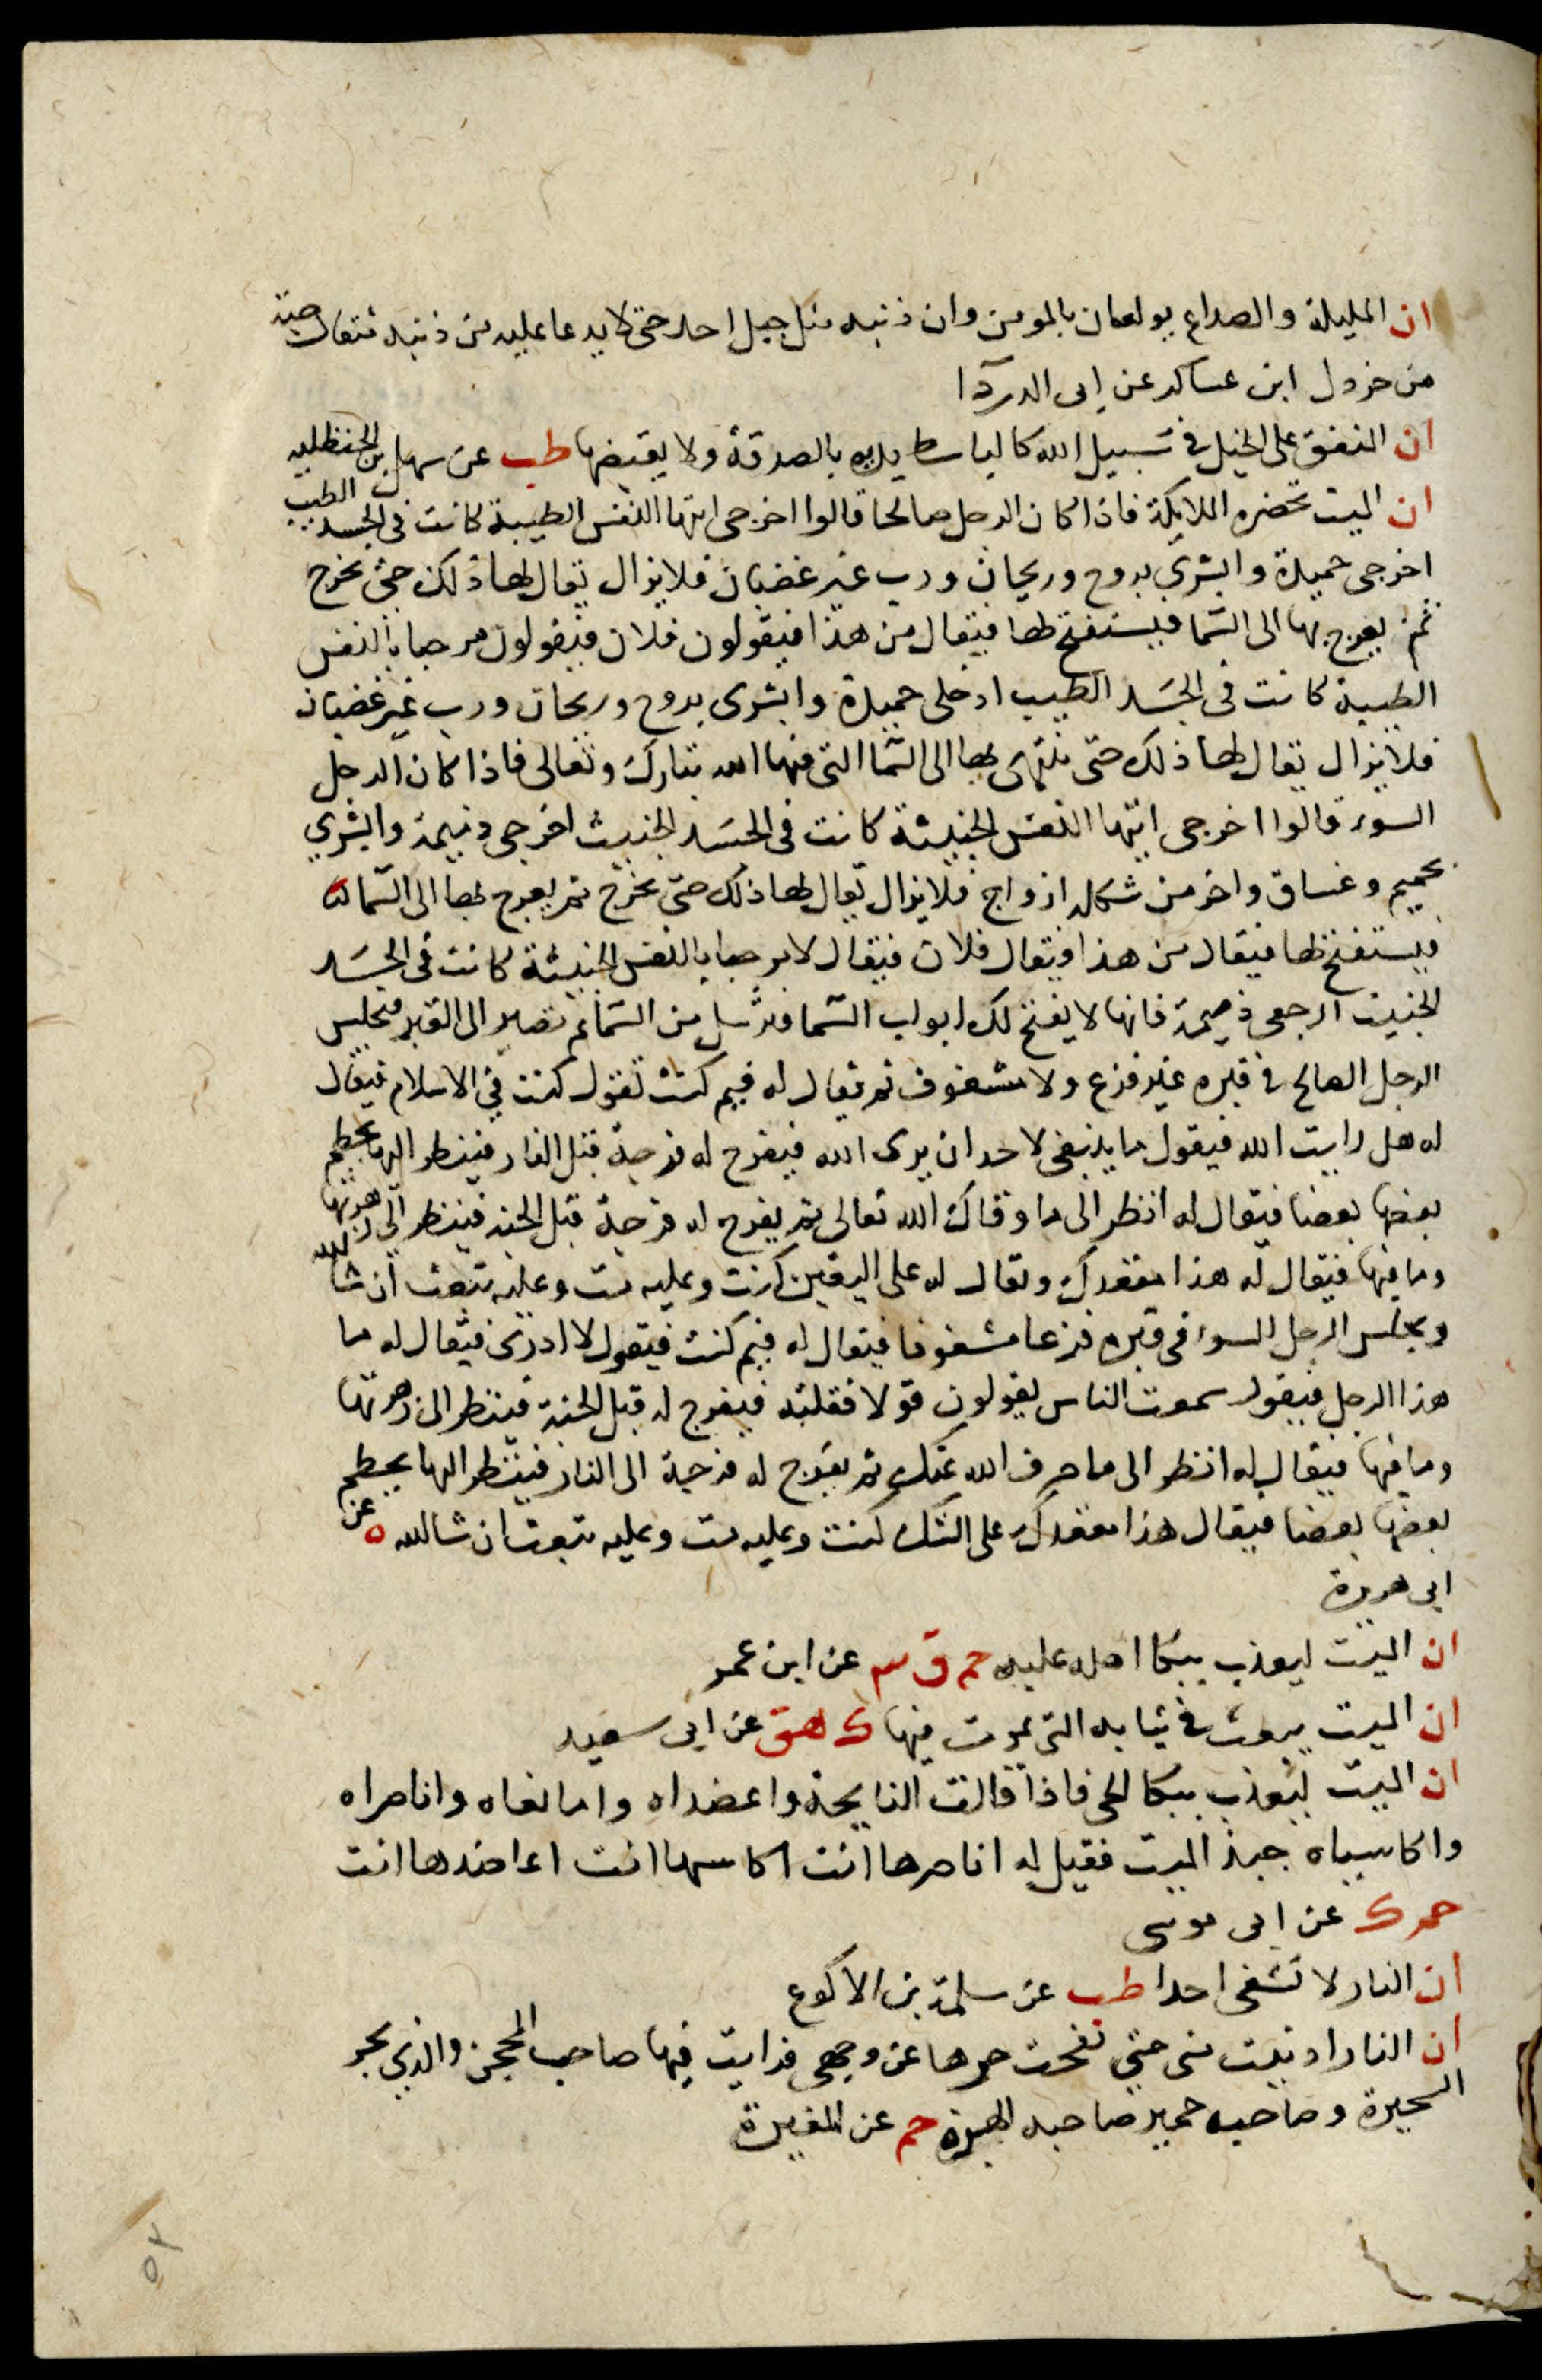 ان المليلة والصداع يولعان بالمومن وان ذنبه مثل جبل احد حتى لا يدعا عليه من ذنبه مثقال حبة
من خردل ابن عساكر عن ابى الدرداآ
ان المنفق على الخيل فى سبيل الله كالباسط يديه بالصدقة ولا يقبضها طب عن سهل بن الحنظليه
ان الميت تحضره الملايكة فاذا كان الرجل صالحا قالوا اخرجى ايتها النفس الطيبة كانت فى الجسد الطيب
اخرجى حميدة وابشرى بروح وريحان ورب غير غضبان فلا يزال يقال لها ذلك حتى تخرج
ثم يعرج بها الى السما فيستفتح لها فيقال من هذا فيقولون فلان فيقولون مرحبا بالنفس
الطيبة كانت فى الجسد الطيب ادخلى حميدة وابشرى بروح وريحان ورب غير غضبان
فلا يزال يقال لها ذلك حتى ينتهى بها الى السما التى فيها الله تبارك وتعالى فاذا كان الرجل
السوء قالوا اخرجى ايتها النفس الخبيثة كانت فى الجسد الخبيث اخرجى ذميمة وابشري
بحميم وغساق واخر من شكله ازواج فلا يزال يقال لها ذلك حتى تخرج ثم يعرج بها الى السما
فيستفتح لها فيقال من هذا فيقال فلان فيقال لا مرحبا بالنفس الخبيثة كانت فى الجسد
الخبيث ارجعى ذميمة فانها لا يفتح لك ابواب السما فترسل من السما ثم تصير الى القبر فيجلس
الرجل الصالح فى قبره غير فزع ولا مشغوف ثم يقال له فيم كنت فيقول كنت فى الاسلام فيقال
له هل رايت الله فيقول ما ينبغى لاحد ان يرى الله فيفرج له فرجة قبل النار فينظر اليها يحطم
بعضها بعضا فيقال له انظر الى ما وقاك الله تعالى ثم يفرج له فرجة قبل الجنة فينظر الى زهرتها
وما فيها فيقال له هذا مقعدك ويقال له على اليقين كنت وعليه مت وعليه تبعث ان شا الله
ويجلس الرجل السوء فى قبره فزعا مشغوفا فيقال له فيم كنت فيقول لا ادرى فيقال له ما
هذا الرجل فيقول سمعت الناس يقولون قولا فقلته فيفرج له قبل الجنة فينظر الى زهرتها
وما فيها فيقال له انظر الى ما صرف الله عنك ثم يفرج له فرجة الى النار فينظر اليها يحطم
بعضها بعضا فيقال هذا مقعدك على الشك كنت وعليه مت وعليه تبعث ان شا الله ه عن
ابى هريرة
ان الميت ليعذب ببكا اهله عليه حم ق عن ابن عمر
ان الميت يبعث فى ثيابه التى يموت فيها ك هق عن ابى سعيد
ان الميت ليعذب ببكا الحى فاذا قالت النايحة واعضداه وامانعاه واناصراه
واكاسياه جبذ الميت فقيل له اناصرها انت اكاسيها انت اعاضدها انت
حم ك عن ابى موسى
ان النار لا تشفى احدا طب عن سلمة بن الاكوع
ان النار ادنيت منى حتى نفحت حرها عن وجهى فرايت فيها صاحب المحجن والذى بحر
البحيرة وصاحب حمير صاحبه الهرة حم عن المغيرة